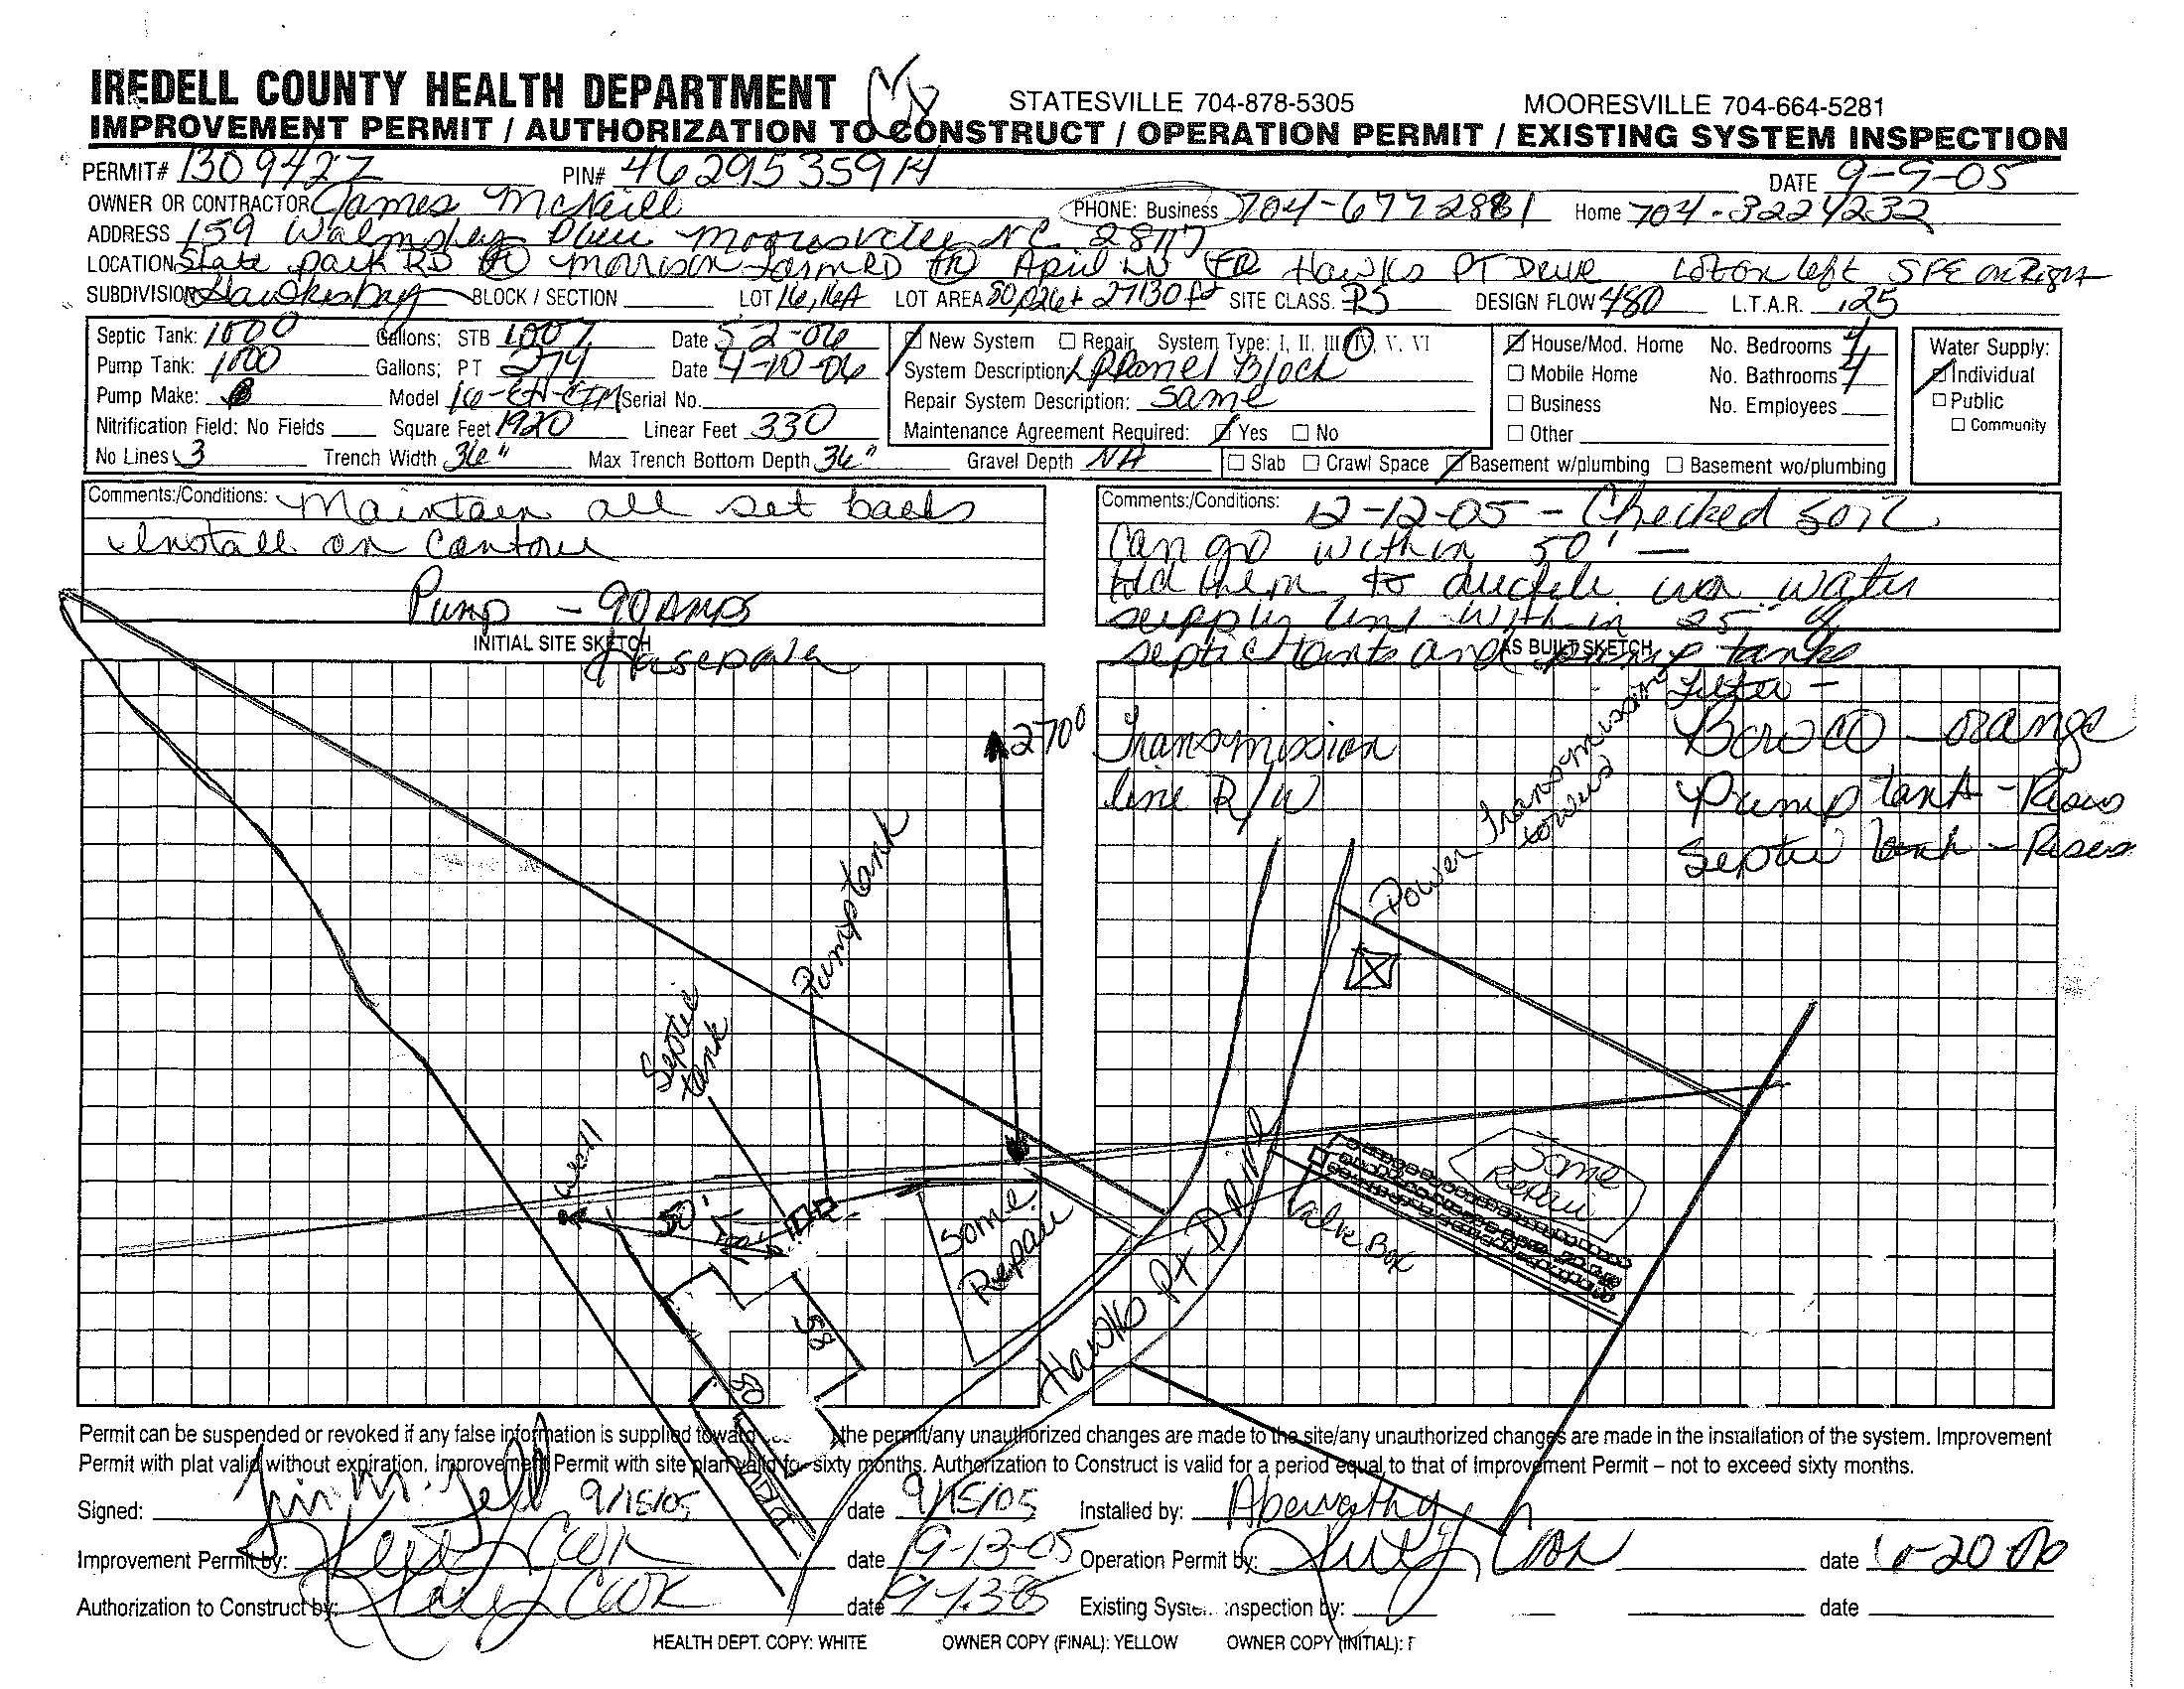 IREDELL COUNTY HEALTH DEPARTMENT STATESVILLE 704-878-5305 MOORESVILLE 704-664-5281
IMPROVEMENT PERMIT / AUTHORIZATION TO CONSTRUCT / OPERATION PERMIT / EXISTING SYSTEM INSPECTION
PERMIT# 1309427 PIN# 462953591A DATE 9-9-05
OWNER OR CONTRACTOR James McNeill PHONE: Business 704-6772881 Home 704-3224232
ADDRESS 159 Walmsley Place Mooresville NC 28117
LOCATION State park RD Morrison Farm RD April LN Hawks PT Drive Lot on left SPE on Right
SUBDIVISION Hawkesbay BLOCK / SECTION LOT 16, 16A LOT AREA SITE CLASS. PS DESIGN FLOW 480 L.T.A.R. .25
Septic Tank: 1000 Gallons; STB 1007 Date 5-2-06
Pump Tank: 1000 Gallons; PT 274 Date 4-10-06
Pump Make: Model Serial No.
Nitrification Field: No Fields Square Feet 1920 Linear Feet 330
No Lines 3 Trench Width 36" Max Trench Bottom Depth 36" Gravel Depth NA
New System Repair System Type: I, II, III, IV, V, VI
System Description LPP Panel Block
Repair System Description: Same
Maintenance Agreement Required: Yes No
House/Mod. Home No. Bedrooms 4
Mobile Home No. Bathrooms 4
Business No. Employees
Other
Slab Crawl Space Basement w/plumbing Basement wo/plumbing
Water Supply:
Individual
Public
Community
Comments:/Conditions: Maintain all set backs
Install on Contour
Pump - 90 amps
Comments:/Conditions: 12-12-05 - Checked soil
Can go within 50' -
told them to ductile iron water
supply line within 25' of
septic tanks and pump tanks
INITIAL SITE SKETCH
AS BUILT SKETCH
Filter -
2700
Transmission
line R/W
Power Transmission
towers
Orange
Pump tank - Risers
Septic tank - Risers
Pump tank
Septic
tank
Well
50'
58
Some
Repair
Hawks Pt Drive
Valve Box
Some
Repair
Permit can be suspended or revoked if any false information is supplied toward the permit/any unauthorized changes are made to the site/any unauthorized changes are made in the installation of the system. Improvement
Permit with plat valid without expiration. Improvement Permit with site plan valid for sixty months. Authorization to Construct is valid for a period equal to that of Improvement Permit – not to exceed sixty months.
Signed: 9/15/05 date 9/15/05 Installed by: Abernathy
Improvement Permit by: Cook date 9-13-05 Operation Permit by: Cook date
Authorization to Construct by: Cook date 9-13-05 Existing System Inspection by: date
HEALTH DEPT. COPY: WHITE OWNER COPY (FINAL): YELLOW OWNER COPY (INITIAL):